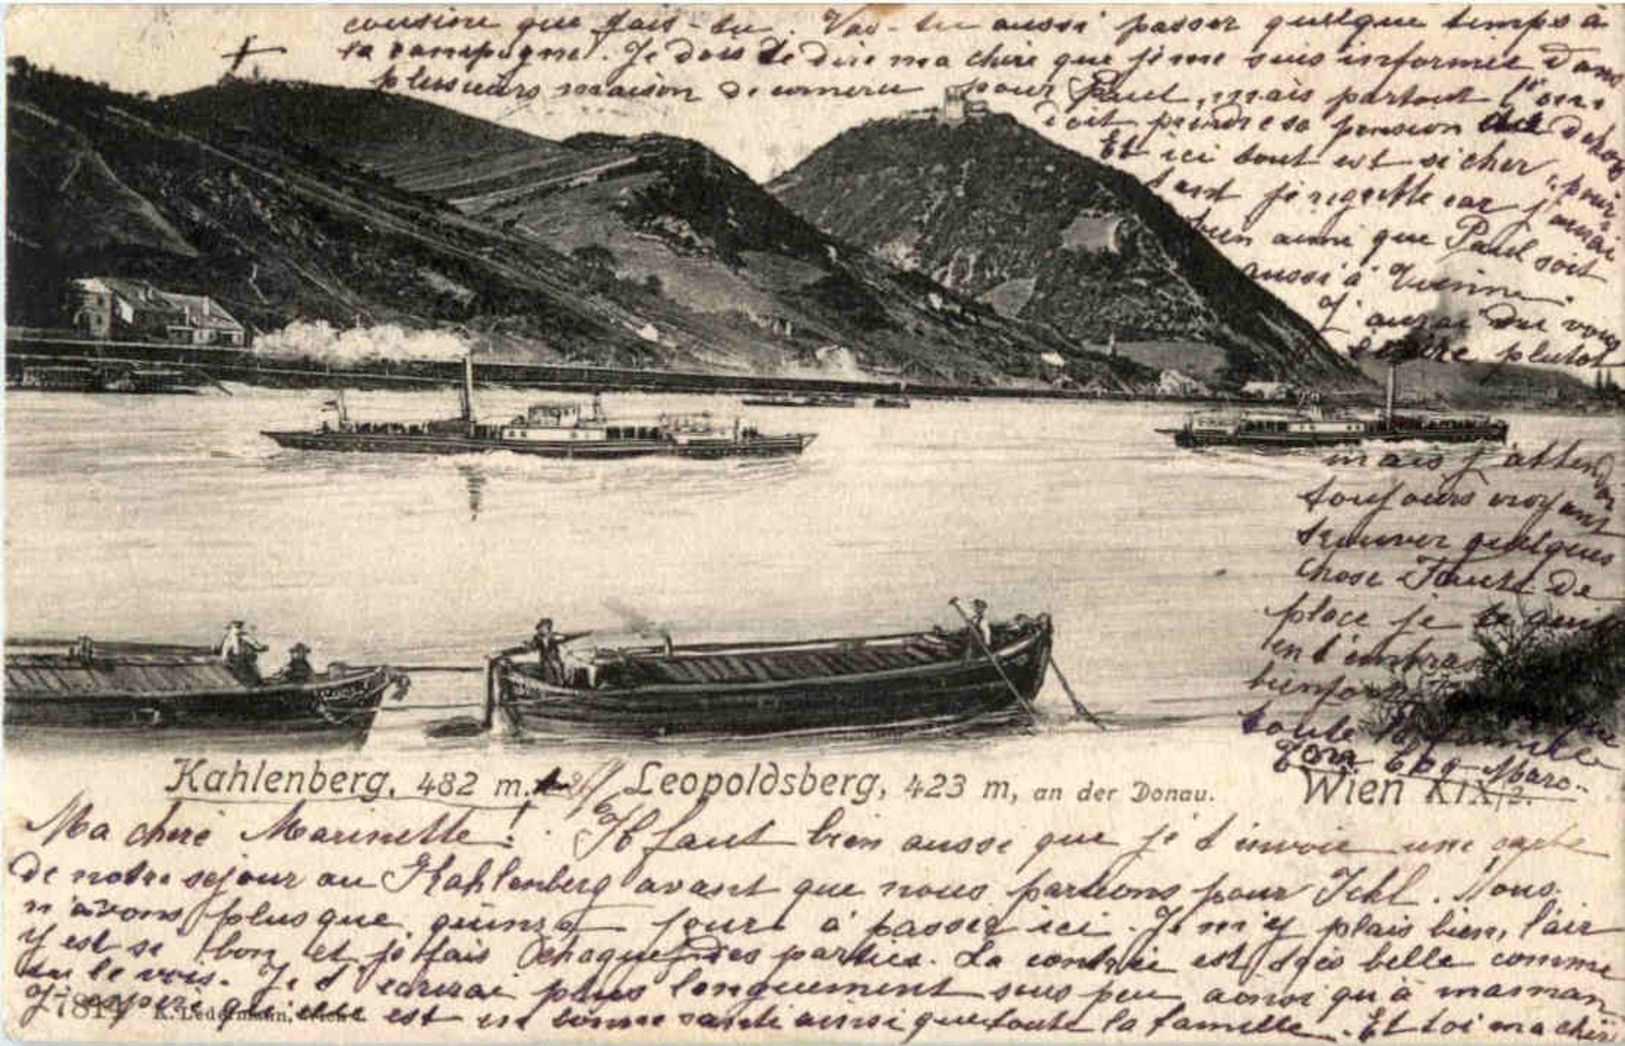 Ma chère Marinette! Il faut bien aussi que je t'envoie une carte
de notre sejour au Kahlenberg avant que nous partions pour Ischl. Nous
n'avons plus que quinze jours à passer ici. Je m'y plais bien, l'air
y est si bon et je fais chaque des parties. La contrée est très belle comme
tu le vois. Je t'écrirai plus longuement sous peu ainsi qu'à maman
J'espère qu'elle est en bonne santé ainsi que toute la famille. Et toi ma chère
cousine que fais-tu. Vas-tu aussi passer quelque temps à
la campagne. Je dois te dire ma chère que je me suis informée dans
plusieurs maison de comerce pour Paul, mais partout l'on
doit prendre sa pension dehors
Et ici tout est si cher, pour
tant je regrette car j'aurai
bien aimé que Paul soit
aussi à Vienne.
J'aurai du vous
écrire plutot
mais j'attendai
toujours croyant
trouver quelques
chose Faute de
place je te quitte
en t'embrassant
bien fort
toute la famille
Kahlenberg, 482 m. Leopoldsberg, 423 m, an der Donau. Wien XIX/2.
7814 K. Ledermann, Wien I.